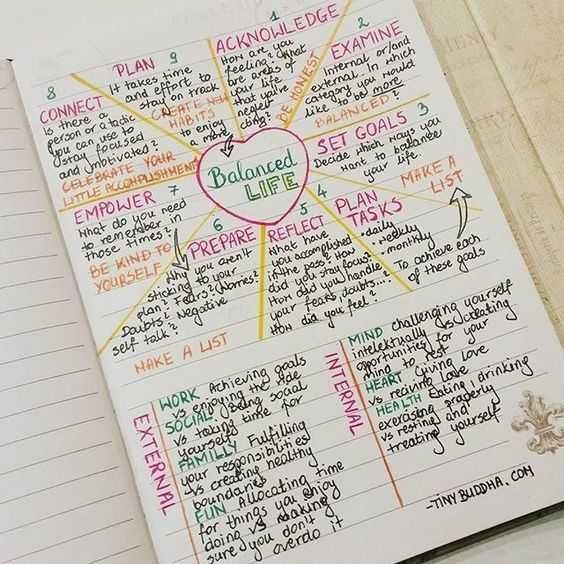 Balanced
LIFE
1
ACKNOWLEDGE
How are you
feeling? What
are areas of
your life
that you're
neglecting?
BE HONEST
2
EXAMINE
Internal or/and
external. In which
category you would
like to be more
BALANCED?
3
SET GOALS
Decide which ways you
want to balance
your life.
MAKE A
LIST
4
PLAN
TASKS
.daily
.weekly
.monthly
To achieve each
of these goals
5
REFLECT
What have
you accomplished
in the past? How
did you stay focus?
How did you handle
your fears, doubts...?
How did you feel?
6
PREPARE
Why you aren't
sticking to your
plan? Fears? Worries?
Doubts? Negative
self talk?
MAKE A LIST
7
EMPOWER
What do you need
to remember in
those times?
BE KIND TO
YOURSELF
8
CONNECT
Is there a
person or a tactic
you can use to
stay focused
and motivated?
CELEBRATE YOUR
LITTLE ACCOMPLISHMENT
9
PLAN
It takes time
and effort to
stay on track
CREATE NEW
HABITS
to enjoy
a more
EXTERNAL
WORK Achieving goals
vs enjoying the ride
SOCIAL Being social
vs taking time for
yourself
FAMILLY Fulfilling
your responsibilities
vs creating healthy
boundaries
FUN Allocating time
for things you enjoy
doing vs making
sure you don't
overdo it
INTERNAL
MIND challenging yourself
intelektually vs creating
oportunities for your
mind to rest
HEART Giving love
vs reciving love
HEALTH Eating, drinking
exercising properly
vs resting and
treating yourself
-TINYBUDDHA.COM